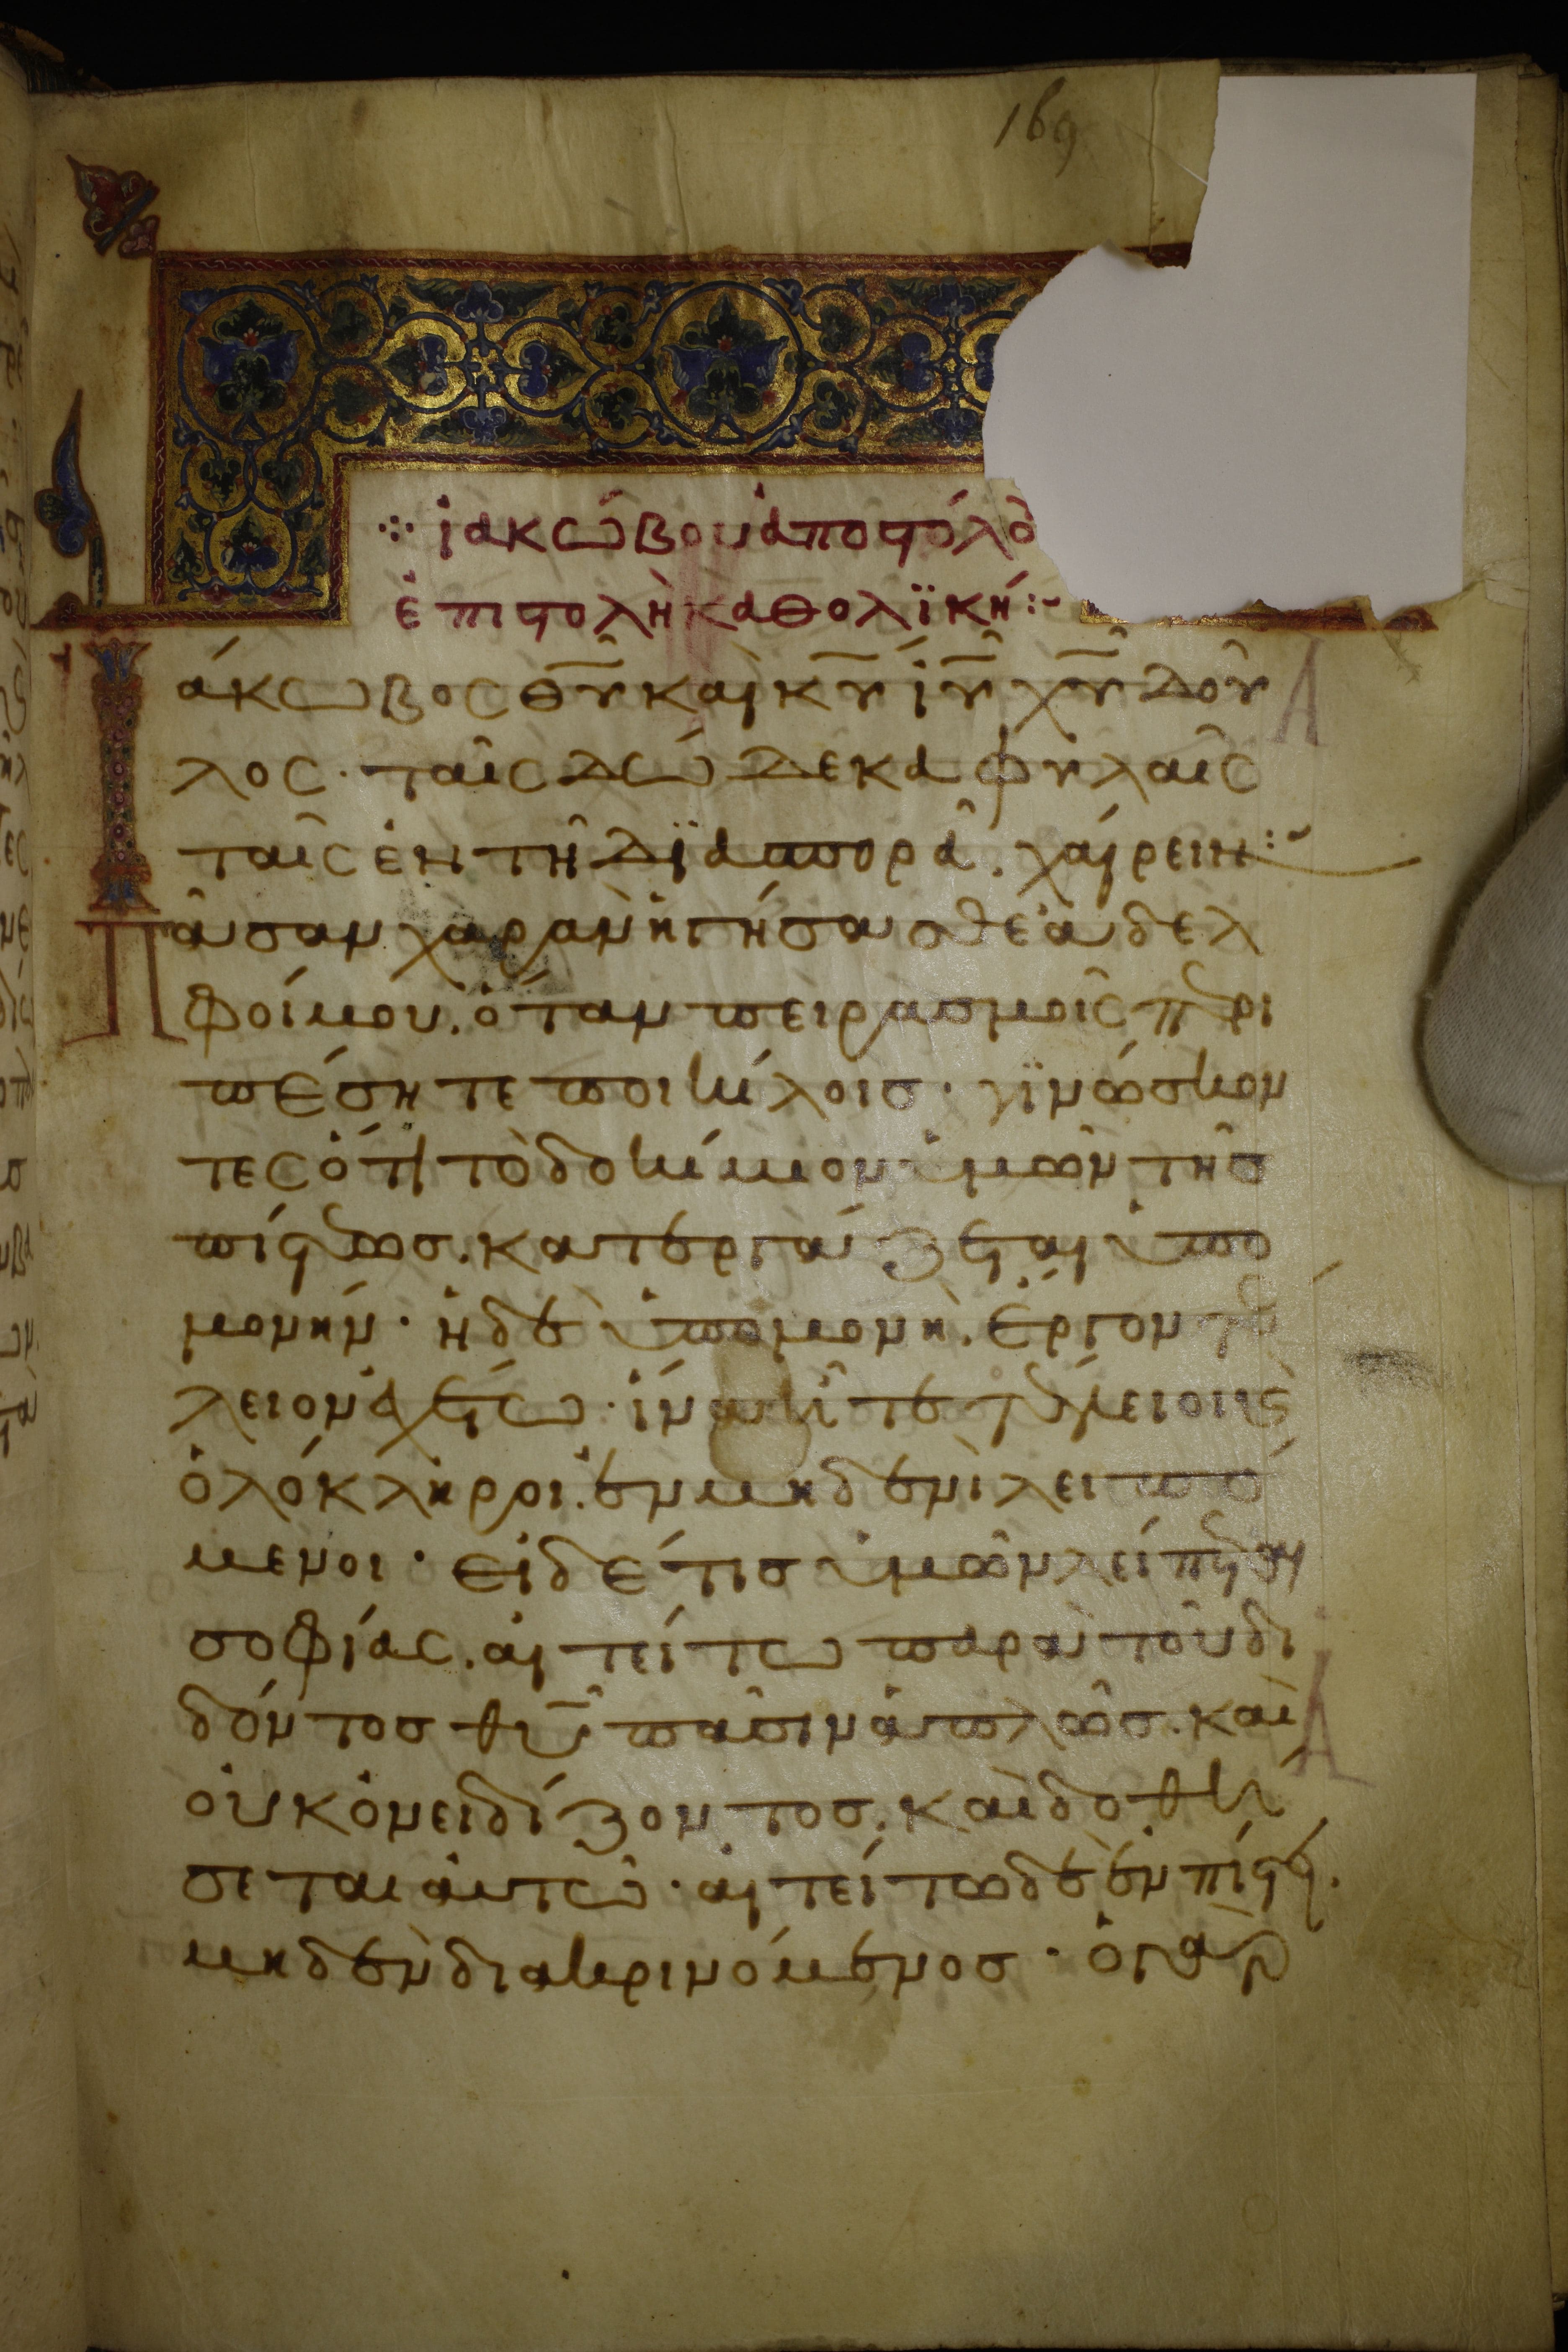 169
ἰακώβου ἀποστόλο
ἐπιστολὴ καθολϊκή:~
Ἰάκωβος θ̅υ̅ καὶ κ̅υ̅ ἰ̅υ̅ χ̅υ̅ δοῦ
λος· ταῖς δώδεκα φυλαῖς
ταῖς ἐν τῇ δϊασπορᾶ. χαίρειν:~
Πᾶσαν χαρὰν ἡγήσασθε ἀδελ
φοί μου. ὅταν πειρασμοῖς περι
πέσητε ποικίλοις· γϊνώσκον
τες ὅτι τὸ δοκίμιον ὑμῶν τῆς
πίστεως. κατεργάζεται ὑπο
μονήν· ἡ δὲ ὑπομονὴ. ἔργον τέ
λειον ἐχέτω· ἵνα ἦτε τέλειοι κς
ὁλόκληροι. ἐν μηδενὶ λειπό
μενοι· εἰ δέ τις ὑμῶν λείπεται
σοφίας. αἰτείτω παρὰ τοῦ δι
δόντος θ̅υ̅ πᾶσιν ἁπλῶς. καὶ
οὐκ ὀνειδίζοντος. καὶ δοθή
σεται αὐτῶ· αἰτείτω δὲ ἐν πίστει.
μηδὲν διακρινόμενος· ὁ γὰρ